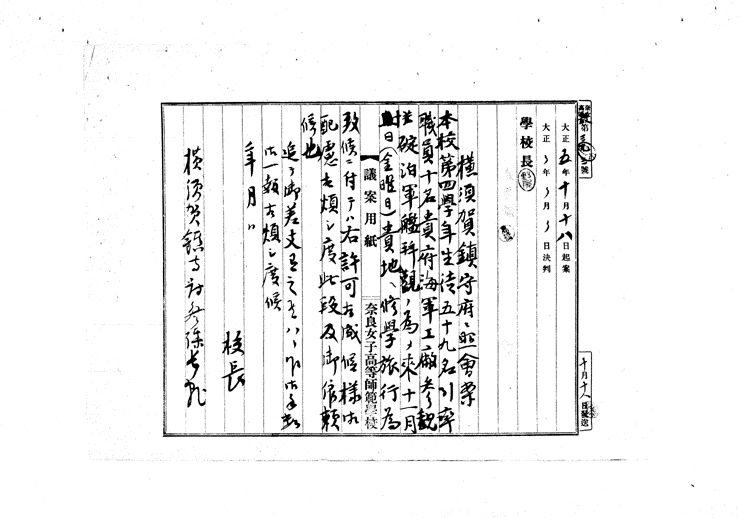 第三號
大正五年十月十八日起案
大正 年 月 日決判
學校長
横須賀鎮守府ヘ照會案
本校第四學年生徒五十九名引率
職員十名貴府海軍工廠参觀
並碇泊軍艦拝觀ノ為メ来十一月
日(金曜日)貴地ヘ修學旅行為
致候ニ付テハ右許可相成候様御
配慮相煩シ度此段及御依頼
候也
追テ御差支有之
御一報相煩シ度候
年月日
校長
横須賀鎮守府参謀長宛
議案用紙
奈良女子高等師範學校
十月十八日發送